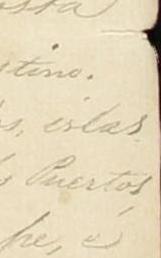 osta
stino.
s, islas
s Puertos,
pe, e